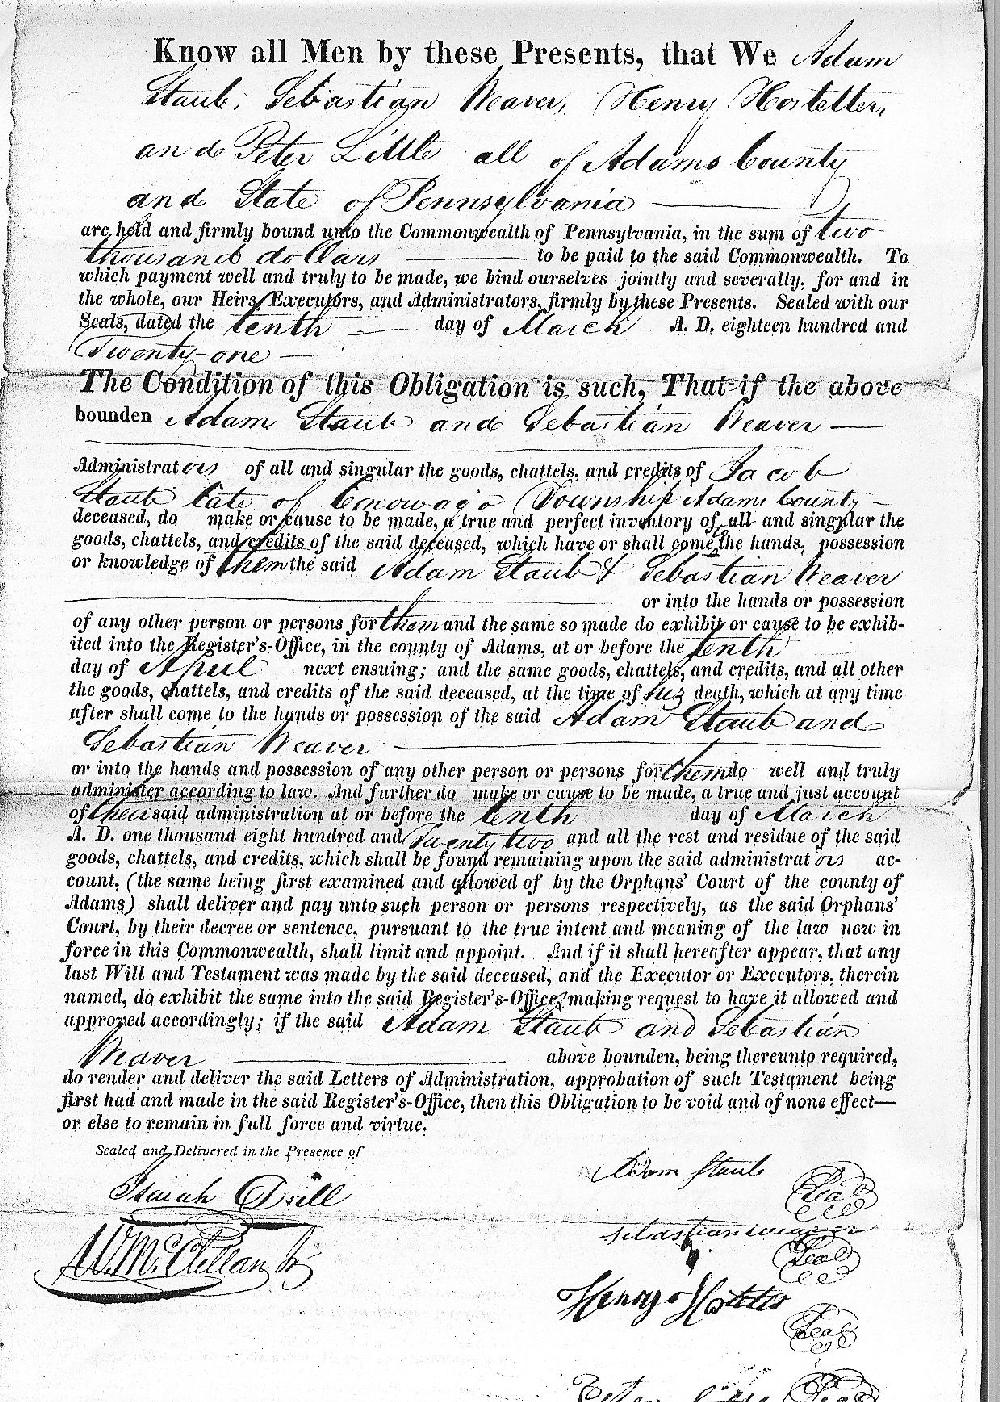 Know all Men by these Presents, that We Adam
Staub, Sebastian Weaver, Henry Hostetter,
and Peter Little all of Adams County
and State of Pennsylvania
are held and firmly bound unto the Commonwealth of Pennsylvania, in the sum of two
thousand dollars to be paid to the said Commonwealth. To
which payment well and truly to be made, we bind ourselves jointly and severally, for and in
the whole, our Heirs, Executors, and Administrators, firmly by these Presents. Sealed with our
Seals, dated the tenth day of March A. D. eighteen hundred and
Twenty-one
The Condition of this Obligation is such, That if the above
bounden Adam Staub and Sebastian Weaver
Administrators of all and singular the goods, chattels, and credits of Jacob
Staub late of Conowago Township Adams County
deceased, do make or cause to be made, a true and perfect inventory of all and singular the
goods, chattels, and credits of the said deceased, which have or shall come the hands, possession
or knowledge of them the said Adam Staub & Sebastian Weaver
or into the hands or possession
of any other person or persons for them and the same so made do exhibit or cause to be exhib-
ited into the Register's-Office, in the county of Adams, at or before the tenth
day of April next ensuing; and the same goods, chattels, and credits, and all other
the goods, chattels, and credits of the said deceased, at the time of his death, which at any time
after shall come to the hands or possession of the said Adam Staub and
Sebastian Weaver
or into the hands and possession of any other person or persons for them do well and truly
administer according to law. And further do make or cause to be made, a true and just account
of their said administration at or before the tenth day of March
A. D. one thousand eight hundred and Twenty two and all the rest and residue of the said
goods, chattels, and credits, which shall be found remaining upon the said administrators ac-
count, (the same being first examined and allowed of by the Orphans' Court of the county of
Adams) shall deliver and pay unto such person or persons respectively, as the said Orphans'
Court, by their decree or sentence, pursuant to the true intent and meaning of the law now in
force in this Commonwealth, shall limit and appoint. And if it shall hereafter appear, that any
last Will and Testament was made by the said deceased, and the Executor or Executors, therein
named, do exhibit the same into the said Register's-Office, making request to have it allowed and
approved accordingly; if the said Adam Staub and Sebastian
Weaver above bounden, being thereunto required,
do render and deliver the said Letters of Administration, approbation of such Testament being
first had and made in the said Register's-Office, then this Obligation to be void and of none effect—
or else to remain in full force and virtue.
Sealed and Delivered in the Presence of
Adam Staub Seal
Isaiah
sebastian weaver Seal
Wm McClellan Jr
Henry Seal
Seal